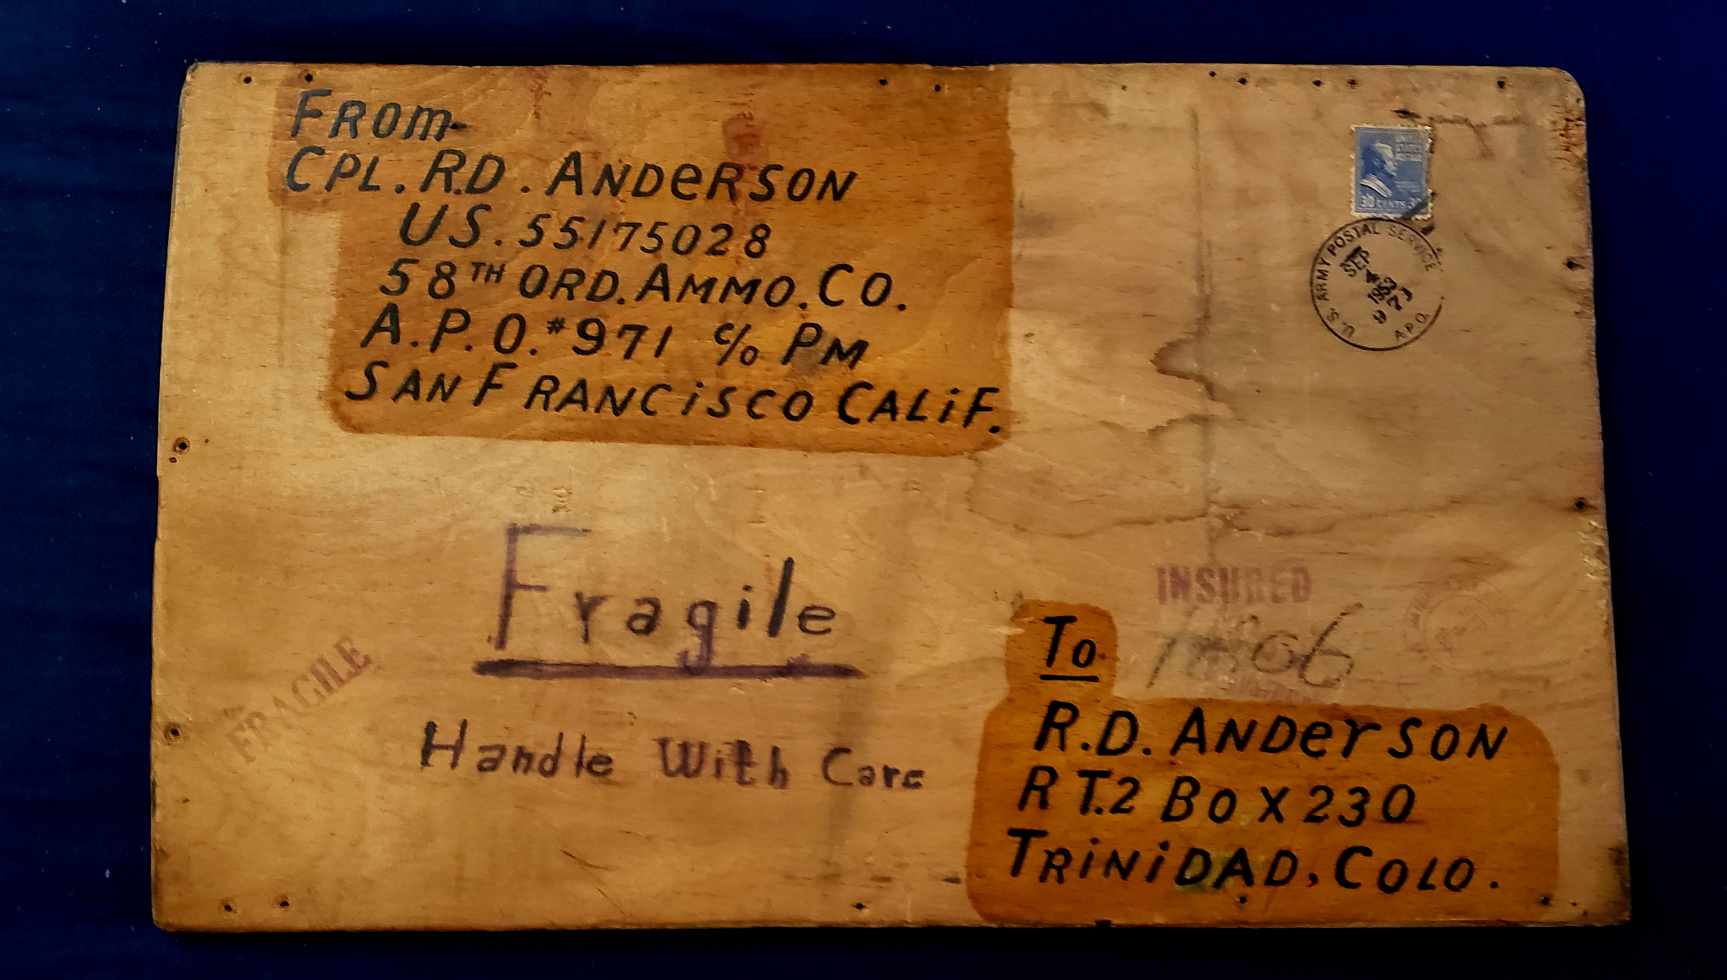 FROM-
CPL. R.D. ANDERSON
US. 55175028
58TH ORD. AMMO. CO.
A.P.O. #971 c/o PM
SAN FRANCISCO CALIF.
30 CENTS 30
U.S. ARMY POSTAL SERVICE
SEP
1953
A.P.O.
Fragile
INSURED
To
FRAGILE
Handle With Care
R.D. ANDERSON
RT.2 BOX 230
TRINIDAD, COLO.